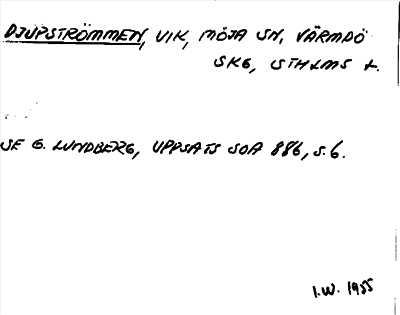 DJUPSTRÖMMEN, VIK, MÖJA SN, VÄRMDÖ
SKG, STHLMS L.
SE G. LUNDBERG, UPPSATS SOA 886, S.6.
I.W. 1955